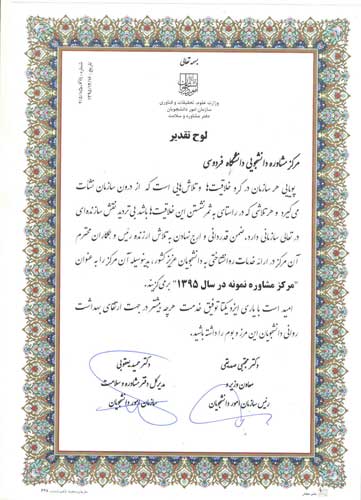 بسمه تعالی
وزارت علوم، تحقیقات و فناوری
سازمان امور دانشجویان
دفتر مشاوره و سلامت
لوح تقدیر
مرکز مشاوره دانشجویی دانشگاه فردوسی
پویایی هر سازمان در گرو خلاقیت‌ها و تلاش‌هایی است که از درون سازمان نشأت
می‌گیرد و هر تلاشی که در راستای به ثمر نشستن این خلاقیت‌ها باشد بی‌تردید نقش سازنده‌ای
در تعالی سازمانی دارد، ضمن قدردانی و ارج نهادن به تلاش ارزنده رئیس و همکاران محترم
آن مرکز در ارائه خدمات روانشناختی به دانشجویان عزیز کشور، بدینوسیله آن مرکز را به عنوان
"مرکز مشاوره نمونه در سال ۱۳۹۵" برمی‌گزیند.
امید است با یاری ایزد یکتا توفیق خدمت هرچه بیشتر در جهت ارتقای بهداشت
روانی دانشجویان این مرز و بوم را داشته باشید.
دکتر مجتبی صدیقی
معاون وزیر و
رئیس سازمان امور دانشجویان
دکتر حمید یعقوبی
مدیرکل دفتر مشاوره و سلامت
سازمان امور دانشجویان